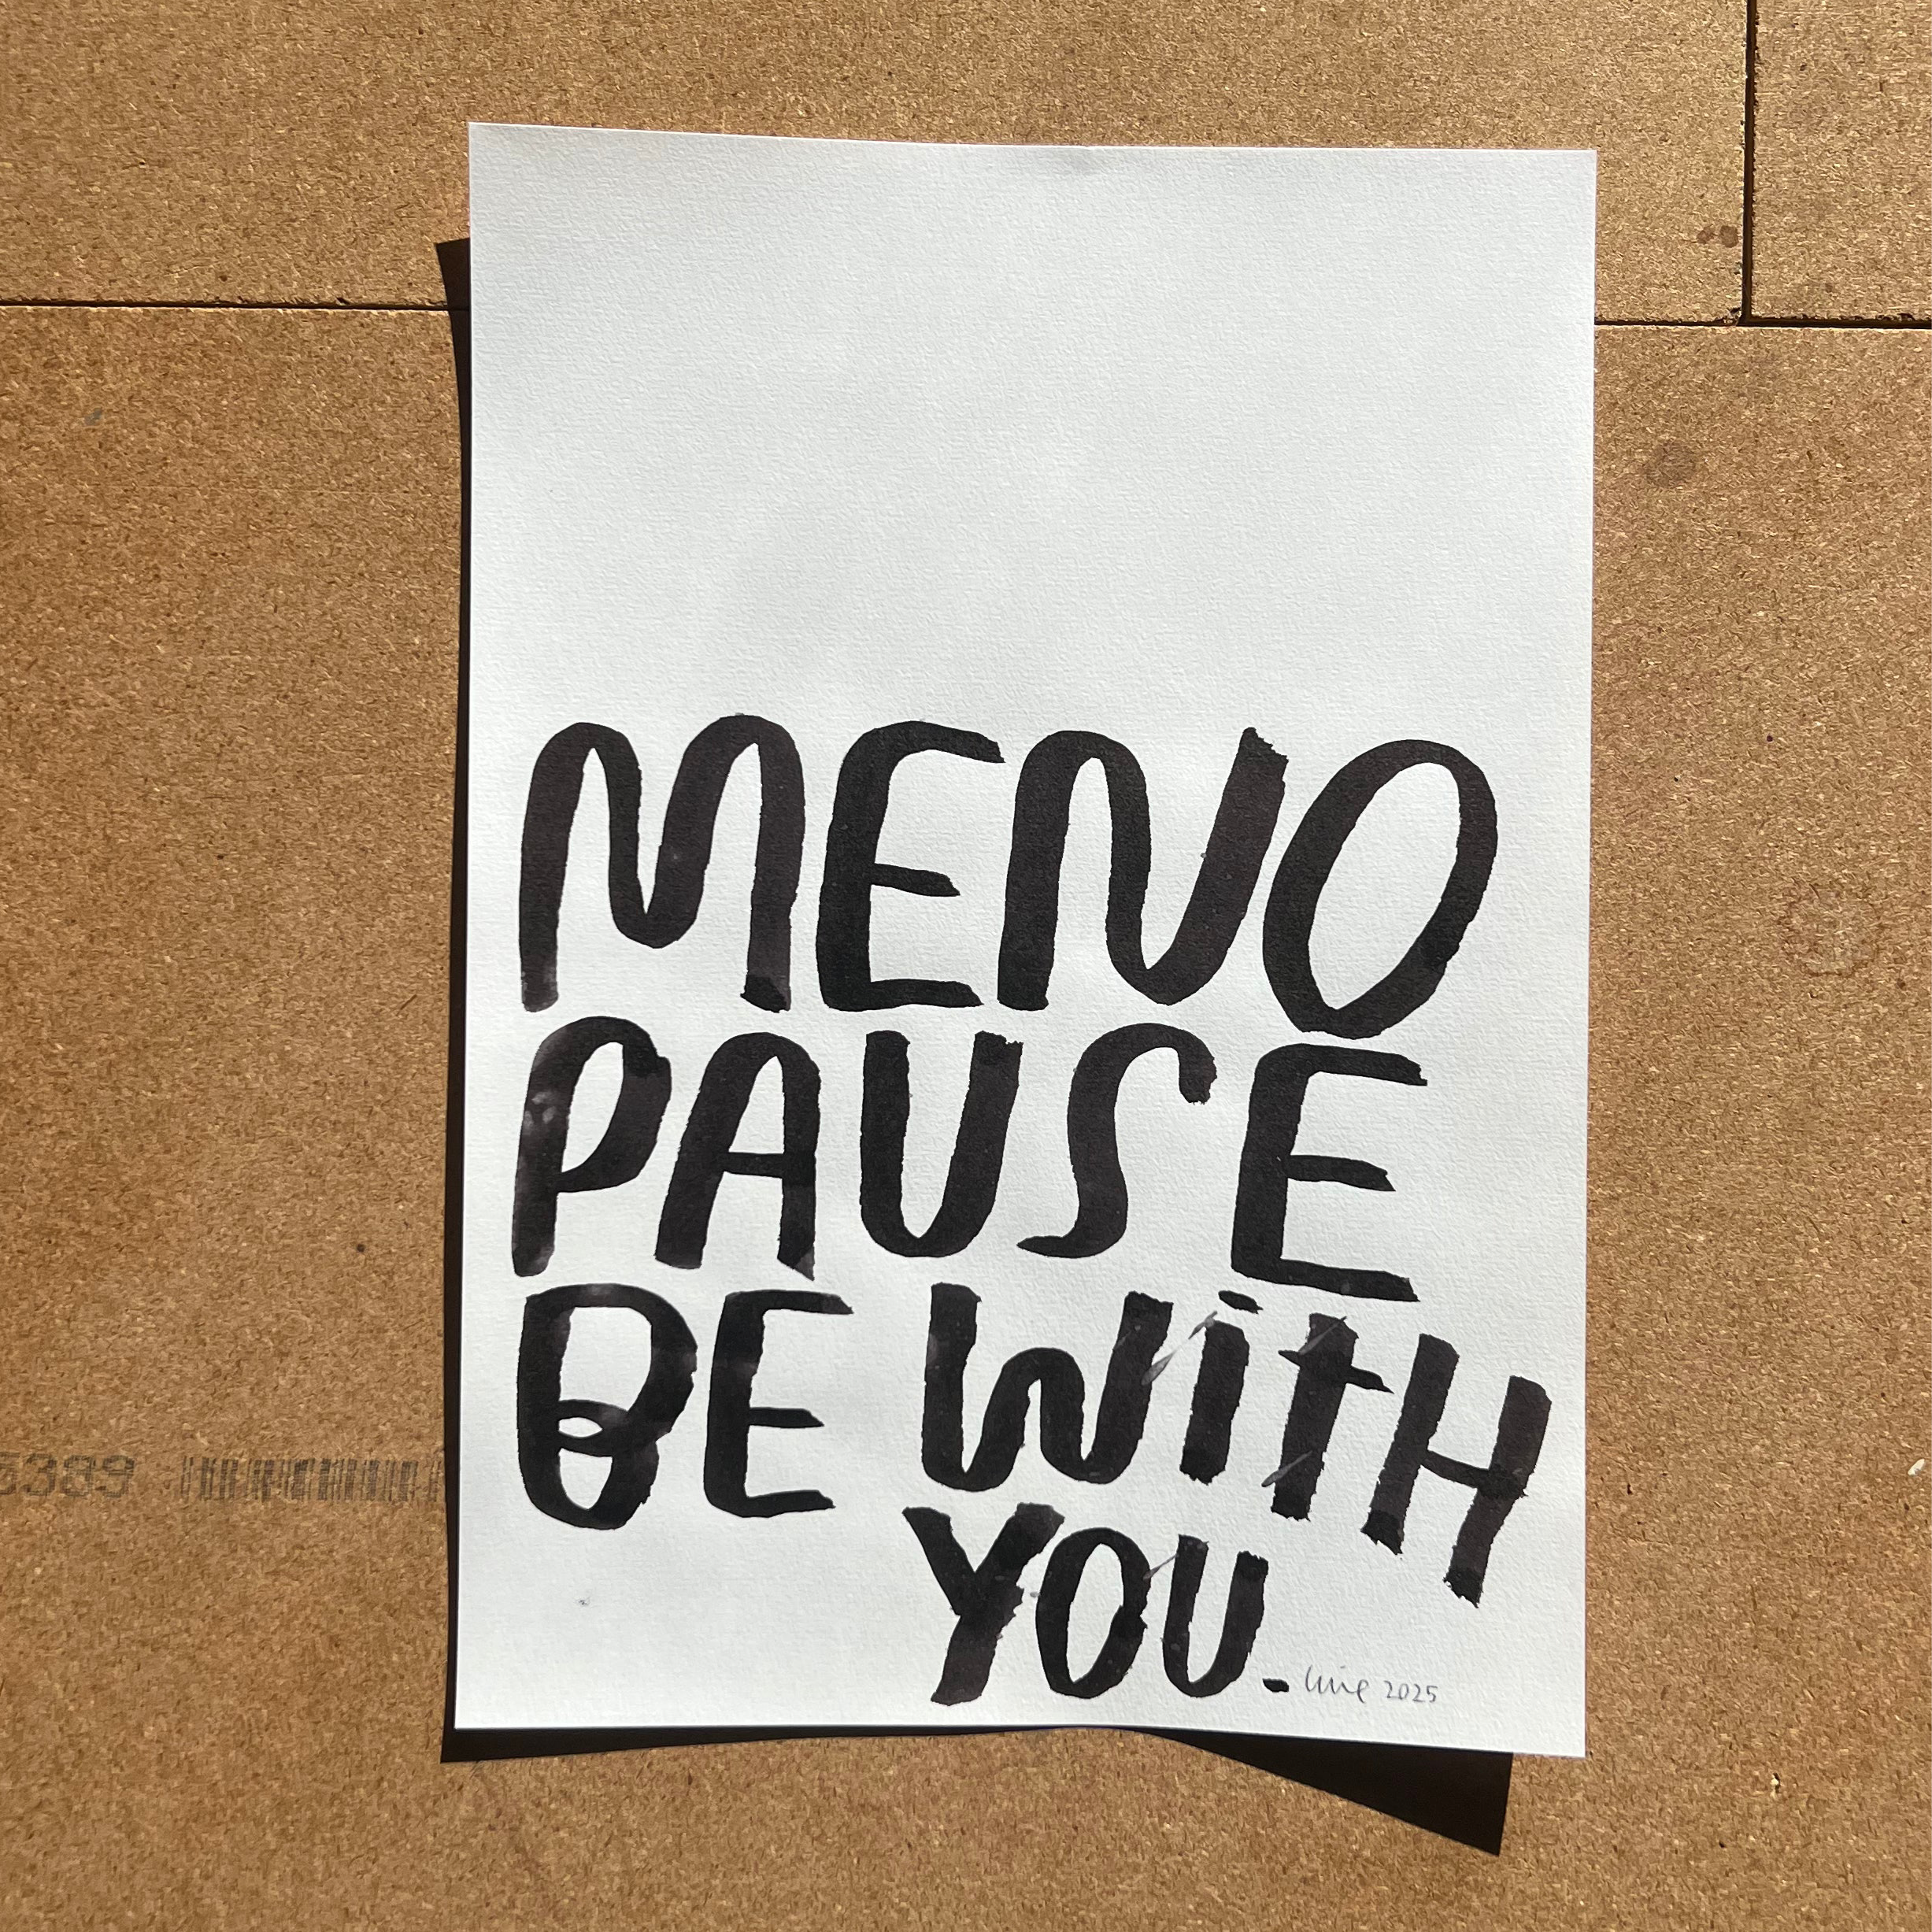 MENO
PAUSE
BE WitH
YOU.
2025
5389